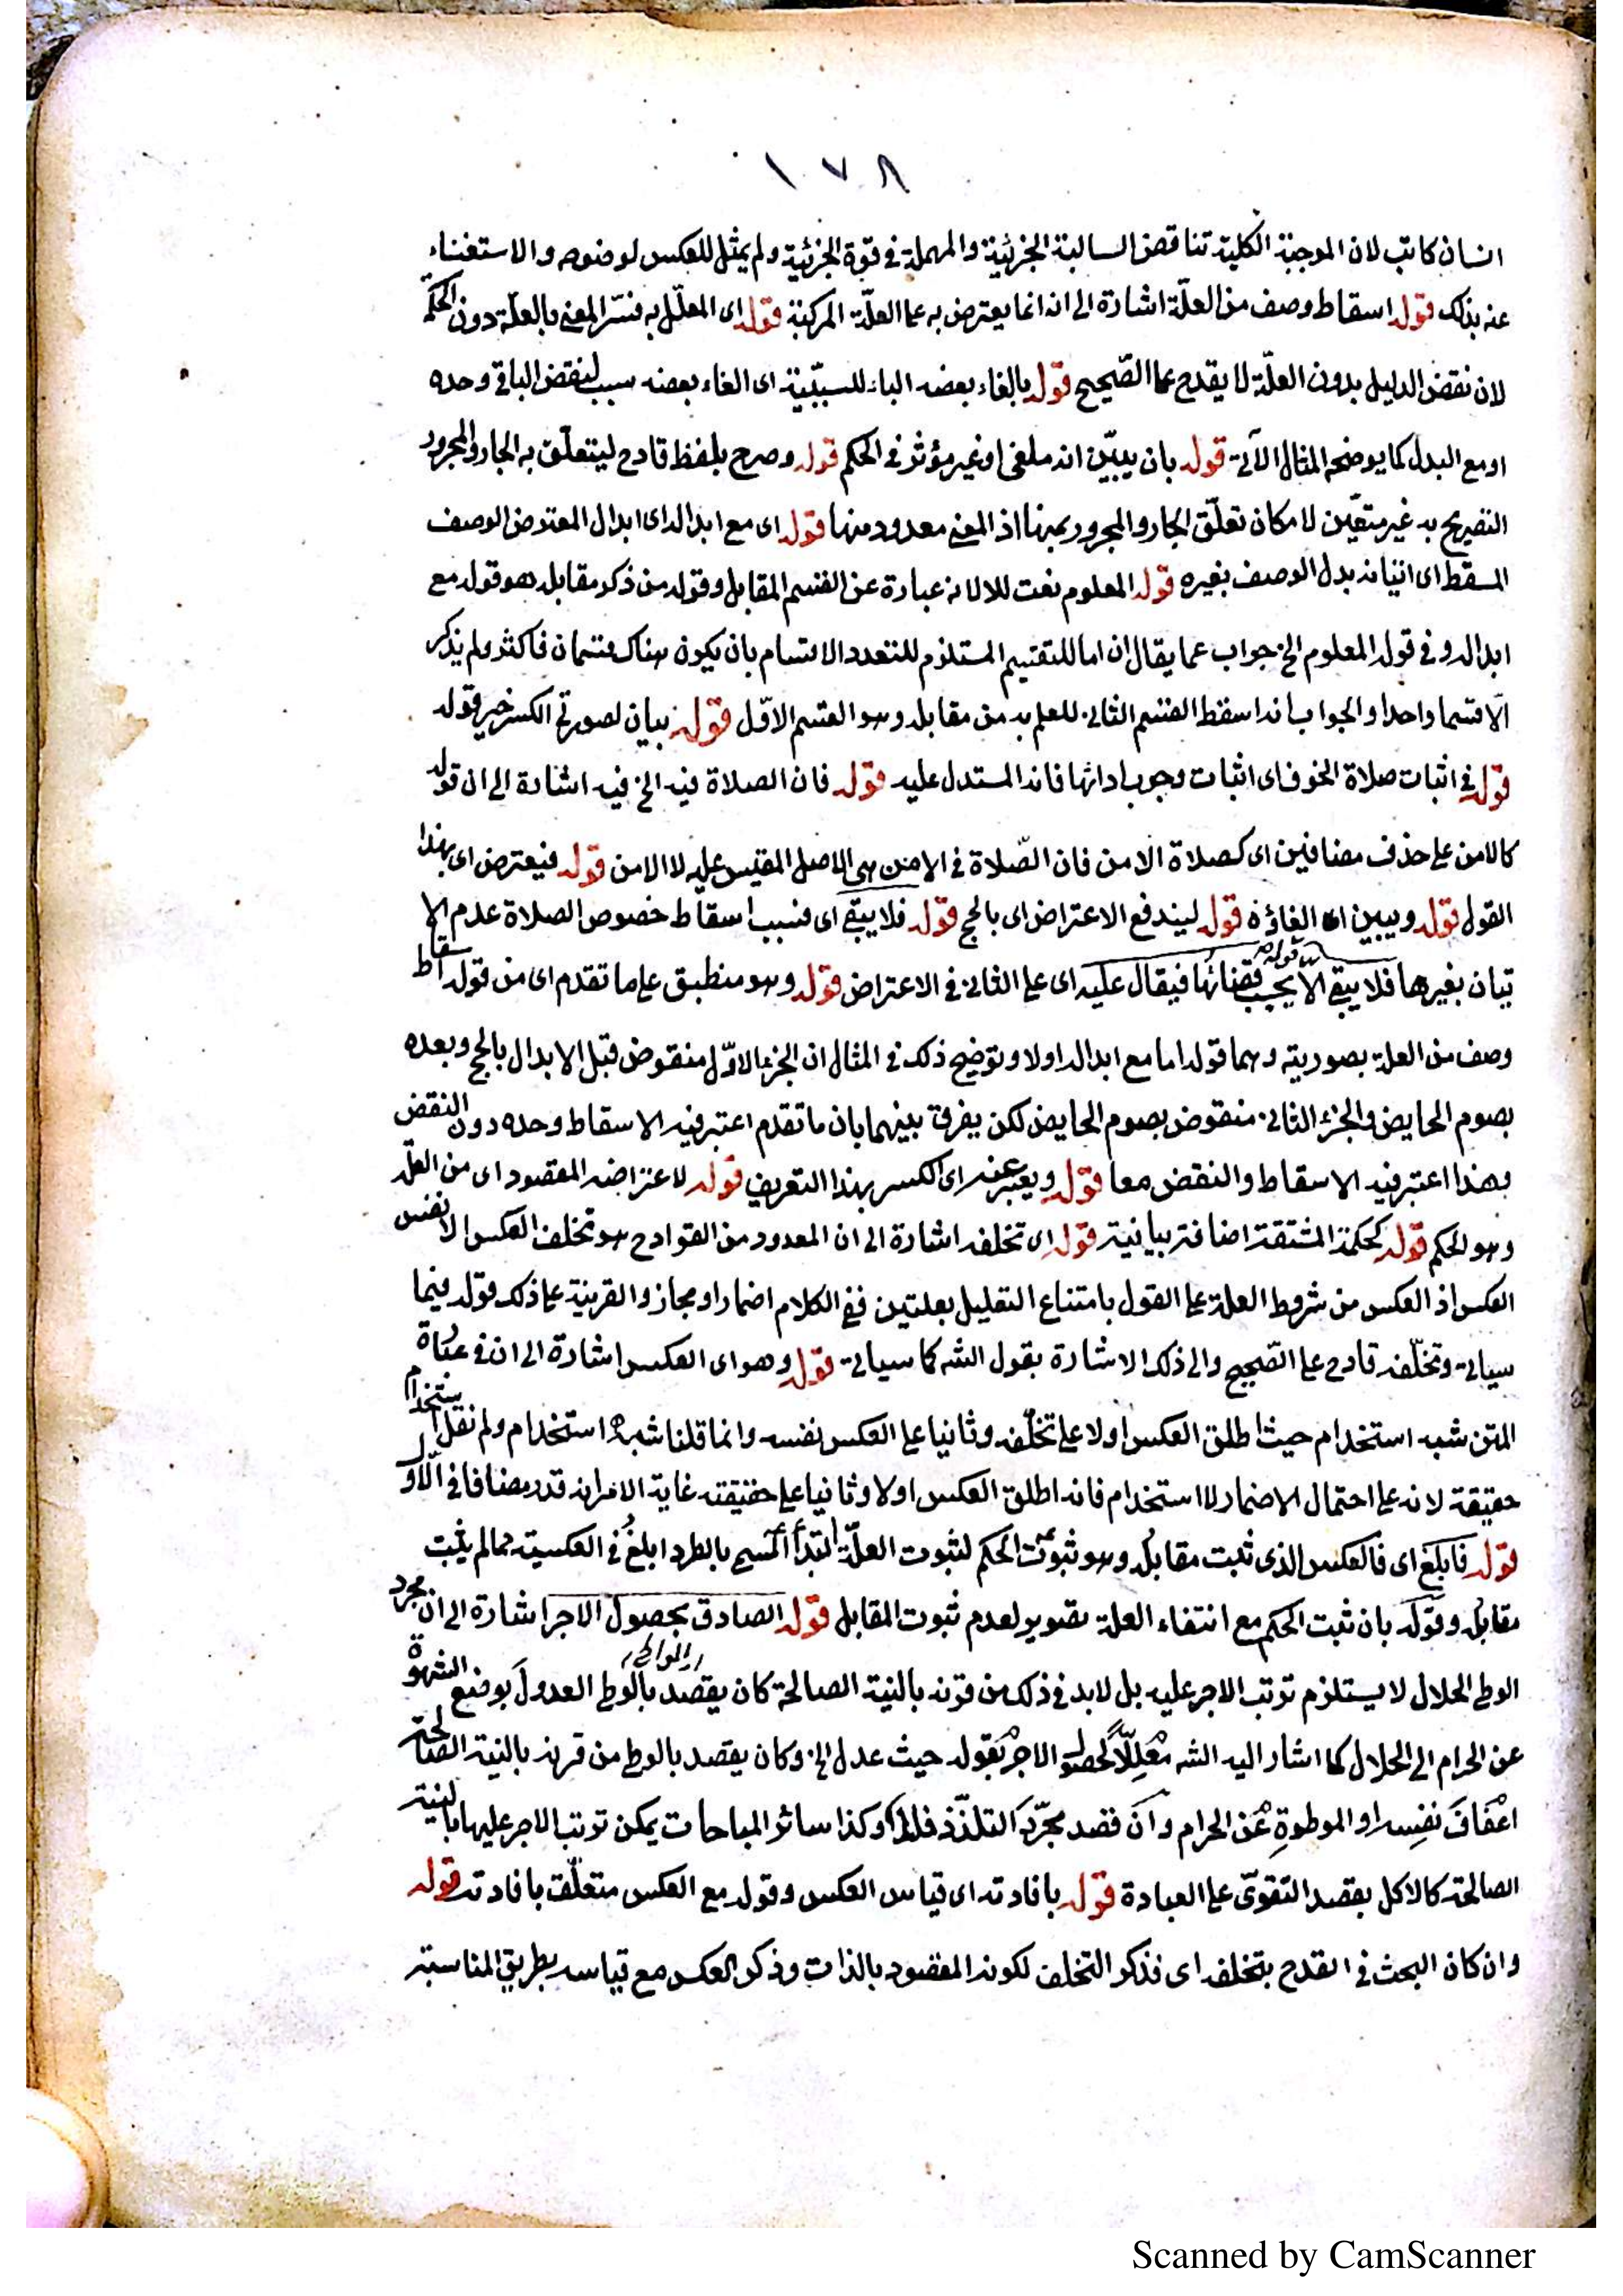 ١٧٨
انسان كاتب لان الموجبة الكلية تناقض السالبة الجزئية والمهملة فى قوة الجزئية ولم يمثل للعكس لوضوحه والاستغناء
عنه بذلك قوله اسقاط وصف من العلّة اشارة الى انه انما يعترض به على العلّة المركبة قوله اى المعلّل به فسّر المعنى بالعلّة دون الحكمة
لان نقض الدليل بدون العلّة لا يقدح على الصّحيح قوله بالغاء بعضه الباء للسببيّة اى الغاء بعضه سبب لنقض الباقى وحده
او مع البدل كما يوضحه المثال الآتى قوله بان يبيّن انه ملغى او غير مؤثر فى الحكم قوله وصرح بلفظ قادح ليتعلّق به الجار والمجرور
التصريح به غير متعيّن لامكان تعلّق الجار والمجرور بمنها اذ المعنى معدود منها قوله اى مع ابداله اى ابدال المعترض الوصف
المسقط اى اتيانه بدل الوصف بغيره قوله المعلوم نعت للا لانه عبارة عن القسم المقابل وقوله من ذكر مقابله هو قوله مع
ابداله وفى قوله المعلوم الخ جواب عما يقال ان اما للتقسيم المستلزم للتعدد الاقسام بان يكون هناك قسمان فاكثر ولم يذكر
الّا قسما واحدا والجواب بانه اسقط القسم الثانى للعلم به من مقابله وهو القسم الاوّل قوله بيان لصورتى الكسر خبر قوله
قوله فى اثبات صلاة الخوف اى اثبات وجوب ادائها فانه المستدل عليه قوله فان الصلاة فيه الخ فيه اشارة الى ان قوله
كالامن على حذف مضافين اى كصلاة الامن فان الصّلاة فى الامن هى الاصل المقيس عليه لا الامن قوله فيعترض اى بهذا
القول قوله ويبين اى الغاؤه قوله ليندفع الاعتراض اى بالحج قوله فلا يبقى اى فبسبب اسقاط خصوص الصلاة عدم الا
تيان بغيرها فلا يبقى الا يجب قضائها قوله فيقال عليه اى على الثانى فى الاعتراض قوله وهو منطبق على ما تقدم اى من قوله اسقاط
وصف من العلة بصورتيه وهما قوله اما مع ابداله اولا وتوضيح ذلك فى المثال ان الجزء الاوّل منقوض قبل الابدال بالحج وبعده
بصوم الحايض والجزء الثانى منقوض بصوم الحايض لكن يفرق بينهما بان ما تقدم اعتبر فيه الاسقاط وحده دون النقض
وهذا اعتبر فيه الاسقاط والنقض معا قوله ويعبر عنه اى الكسر بهذا التعريف قوله لاعتراضه المقصود اى من العلّة
وهو الحكم قوله كحكمة المشتقة اضافته بيانية قوله اى تخلفه اشارة الى ان المعدود من القوادح هو تخلف العكس لا نفس
العكس اذ العكس من شروط العلة على القول بامتناع التعليل بعلتين ففى الكلام اضمار او مجاز والقرينة على ذلك قوله فيما
سياتى وتخلّفه قادح على الصّحيح والى ذلك الاشارة بقول الشه كما سياتى قوله وهو اى العكس اشارة الى ان فى عبارة
المتن شبه استخدام حيث اطلق العكس اولا على تخلّفه وثانيا على العكس نفسه وانما قلنا شبه استخدام ولم نقل استخدام
حقيقة لانه على احتمال الاضمار لا استخدام فانه اطلق العكس اولا وثانيا على حقيقته غاية الامر انه قدر مضافا فى الاوّل
قوله فابلغ اى فالعكس الذى ثبت مقابله وهو ثبوت الحكم لثبوت العلّة ابدا المسمى بالطرد ابلغ فى العكسية مما لم يثبت
مقابله وقوله بان ثبت الحكم مع انتفاء العلة تصوير لعدم ثبوت المقابل قوله الصادق بحصول الاجر اشارة الى ان مجرد
الوطى الحلال لا يستلزم ترتب الاجر عليه بل لابد فى ذلك من قرنه بالنية الصالحة كان يقصد بالوطى العدول بوضع الشهوة
عن الحرام الى الحلال كما اشار اليه الشه معلّلا لحصول الاجر بقوله حيث عدل الخ وكان يقصد بالوطى من قرنه بالنية الصالحة
اعفاف نفسه او الموطوة عن الحرام وان قصد مجرّد التلذّذ فلا وكذا سائر المباحات يمكن ترتب الاجر عليها بالنية
الصالحة كالاكل بقصد التقوّى على العبادة قوله بافادته اى قياس العكس وقوله مع العكس متعلّق بافادته قوله
وان كان البحث فى القدح بتخلفه اى فذكر التخلف لكونه المقصود بالذات وذكر العكس مع قياسه بطريق المناسبة
Scanned by CamScanner